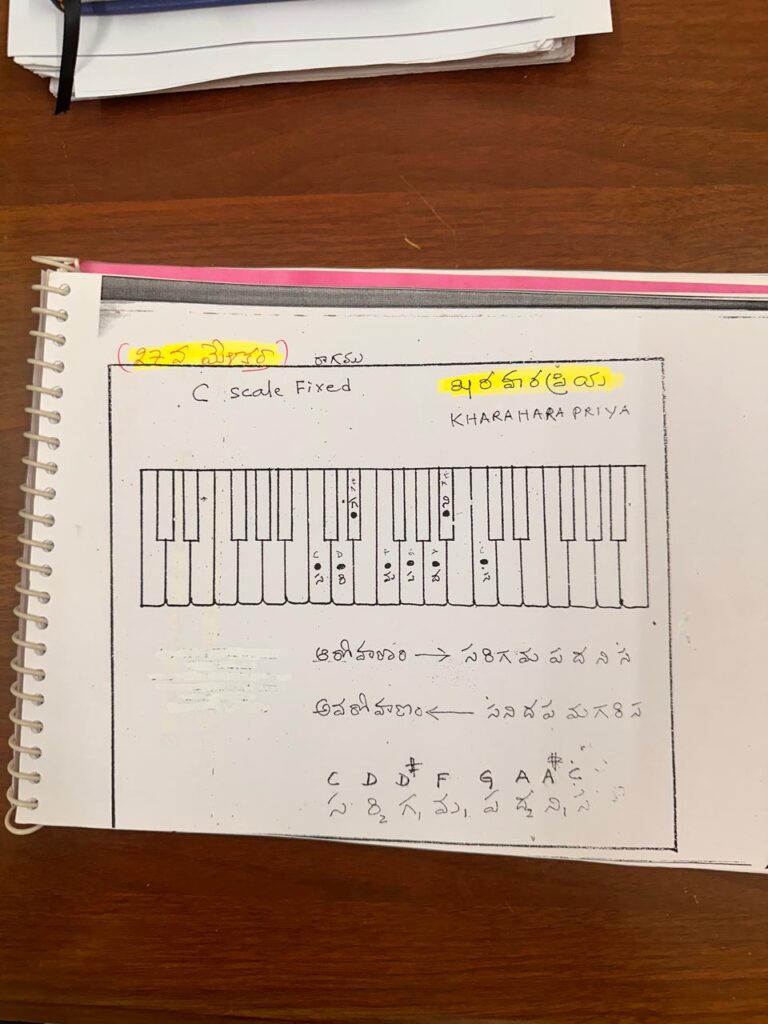 (27 వ మేళకర్త) రాగము
C scale Fixed ఖరహరప్రియ
KHARAHARA PRIYA
గ ని
C D F G A C
స రి మ ప ద స
ఆరోహణం → స రి గ మ ప ద ని స
అవరోహణం ← స ని ద ప మ గ రి స
C D D# F G A A# C
స రి₂ గ₁ మ₁ ప ద₂ ని₁ స